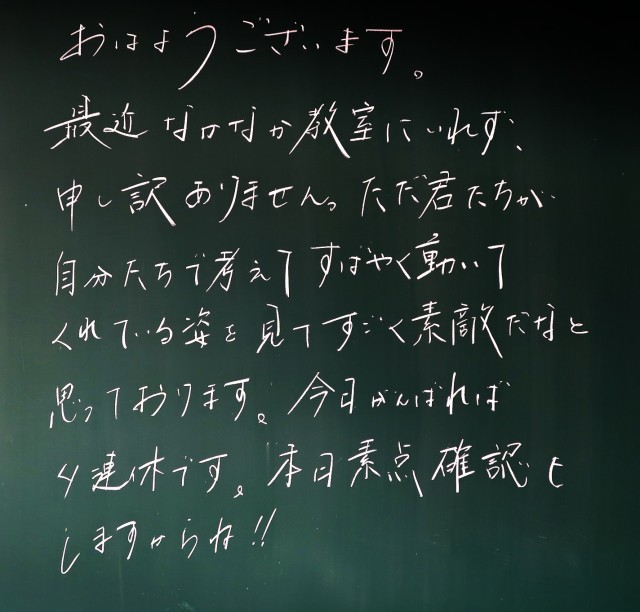 おはようございます。
最近なかなか教室にいれず、
申し訳ありません。ただ君たちが
自分たちで考えてすばやく動いて
くれている姿を見てすごく素敵だなと
思っております。今日がんばれば
4連休です。本日素点確認も
しますからね!!